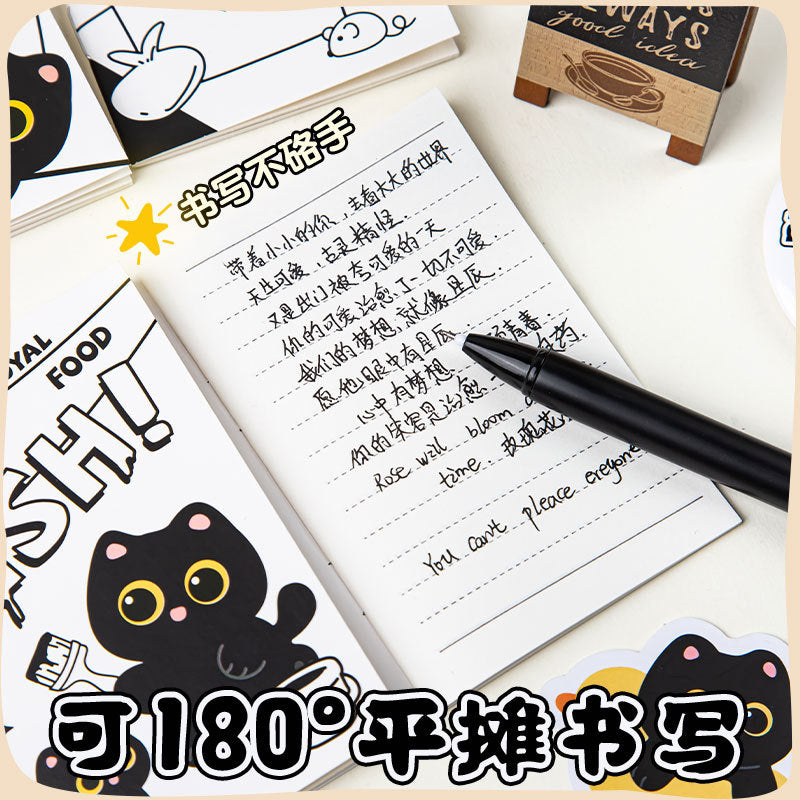 WAYS
good idea
书写不硌手
带着小小的你，去看大大的世界
天生可爱，古灵精怪.
又是出门被夸可爱的一天
你的可爱治愈了一切不可爱.
我们的梦想，就像星辰
愿他眼中有星辰
青春.
心中有梦想
你的笑容是治愈一
药.
Rose will bloom
time. 玫瑰花
You can't pleace ereyone
OYAL
FOOD
SH!
可180°平摊书写